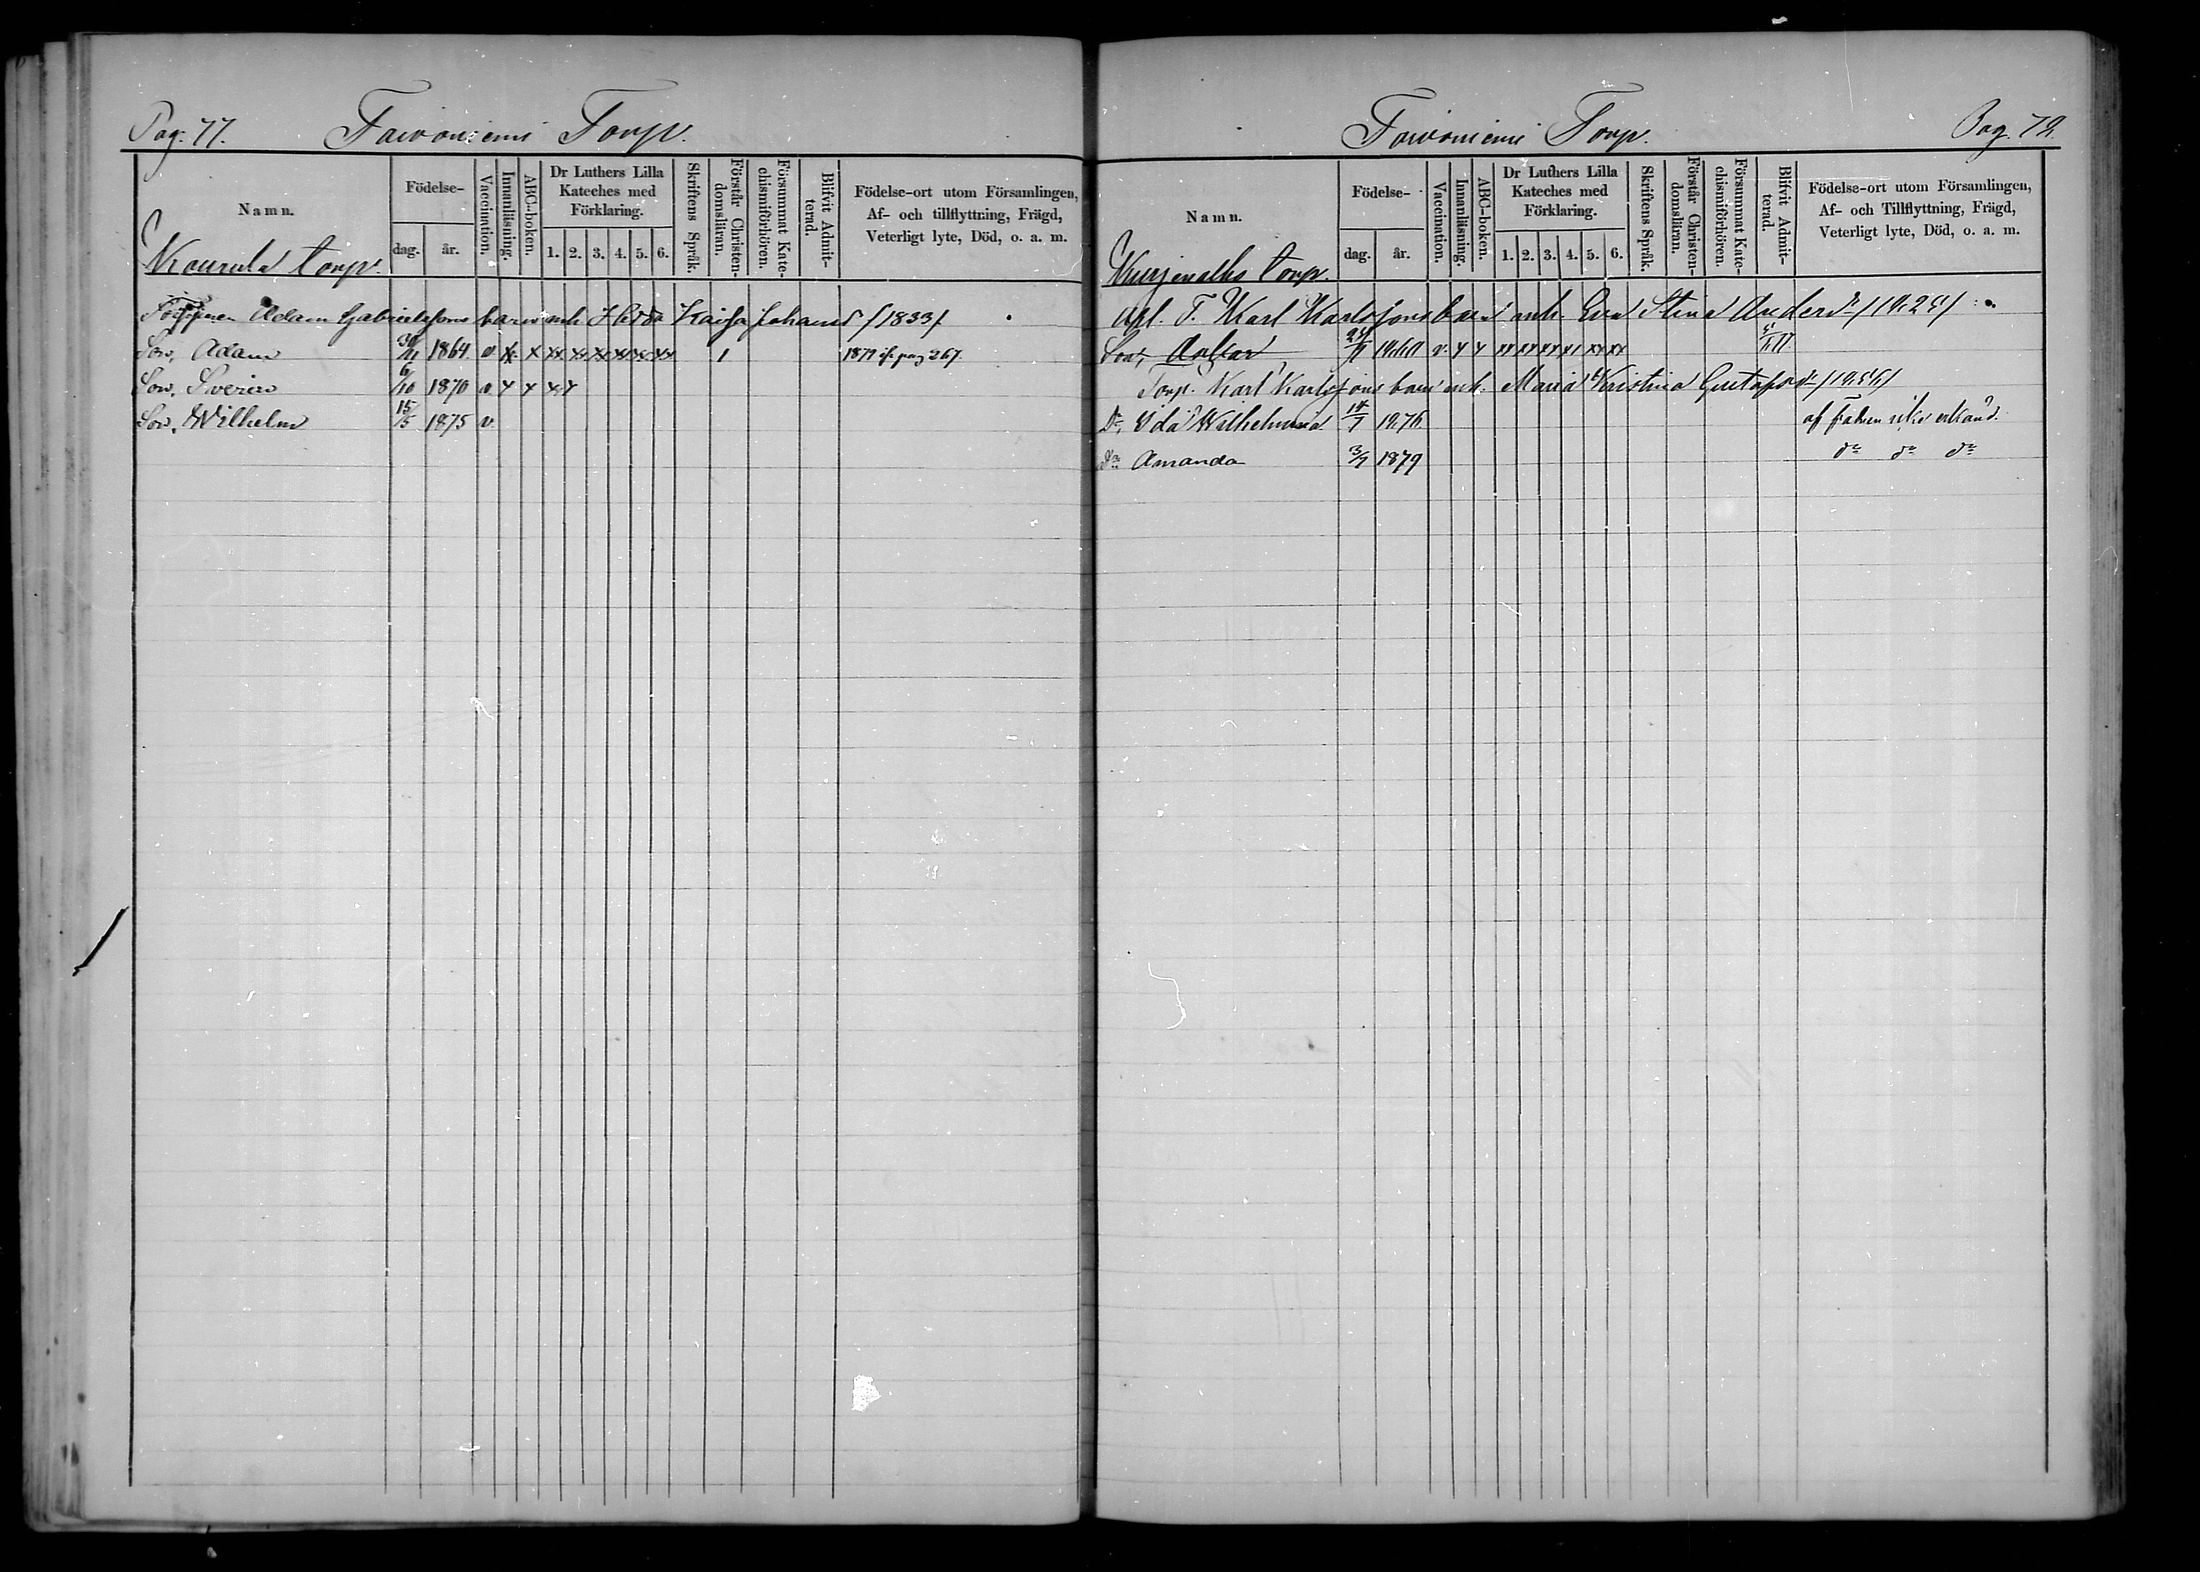 Pag. 77. Taivoniemi Torp.
Namn.
Födelse-
dag. år.
Vaccination.
Innanläsning.
ABC-boken.
Dr Luthers Lilla
Kateches med
Förklaring.
1. 2. 3. 4. 5. 6.
Skriftens Språk.
Förstår Christen-
domsläran.
Försummat Kate-
chismiförhören.
Blifvit Admit-
terad.
Födelse-ort utom Församlingen,
Af- och tillflyttning, Frägd,
Veterligt lyte, Död, o. a. m.
torp.
Adam Gabrielssons barn mh Hedda Kaisa Johansd /1833/
Son, Adam 30/11 1864 v x x xx xx xx xx xx xx 1 1879 pag 267
Son, Sverin 6/10 1870 v x x xx x
Son, Wilhelm 15/5 1875 v
Taivoniemi Torp. Pag. 78.
Namn.
Födelse-
dag. år.
Vaccination.
Innanläsning.
ABC-boken.
Dr Luthers Lilla
Kateches med
Förklaring.
1. 2. 3. 4. 5. 6.
Skriftens Språk.
Förstår Christen-
domsläran.
Försummat Kate-
chismiförhören.
Blifvit Admit-
terad.
Födelse-ort utom Församlingen,
Af- och Tillflyttning, Frägd,
Veterligt lyte, Död, o. a. m.
torp.
T. Karl Karlssons barn mh Eva Stina Anders
Son, v x x xx xx xx xx xx xx
Torp. Karl Karlssons barn mh. Maria Kristina Gustafsd
Dr, Ida Wilhelmina 1876 af fadren icke erkänd.
dr Amanda 3/7 1879 do do do